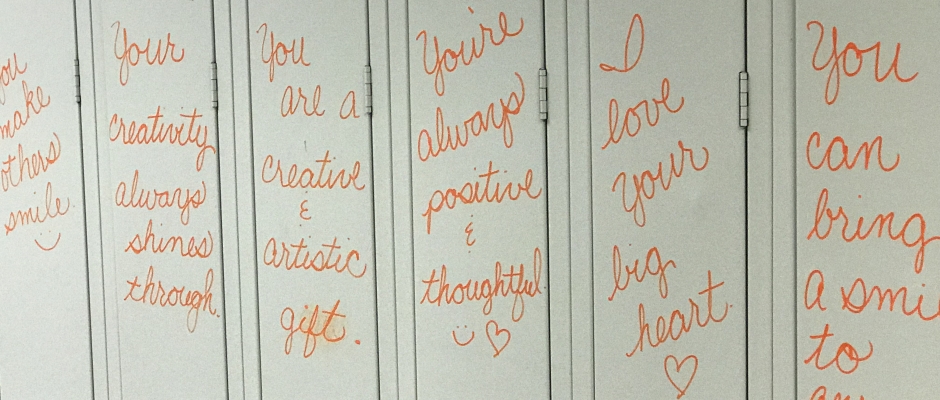 you
make
others
smile.
Your
creativity
always
shines
through.
You
are a
creative
&
artistic
gift.
You're
always
positive
&
thoughtful.
I
love
your
big
heart.
You
can
bring
a smi
to